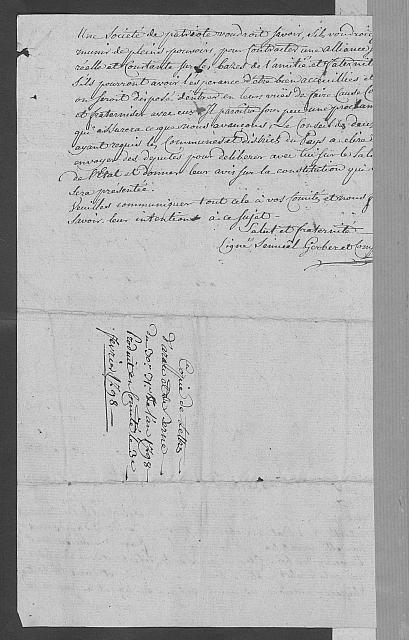 Une Société de patriote voudroit Savoir, s'ils voudroie
munir de pleins pouvoirs, pour contracter une Alliance
réelle et Constante sur les bazes de l'amitié et fraternit
s'ils pourront avoir l'esperance d'être bien accueillies et
on seroit disposé d'entrer en leurs vues de faire Cause Co
et fraterniser avec eux. Il paroitra sous peu une proclam
qui assurera ce que nous avancons; Le Conseil
ayant requis les Communes et districts du Pays a elire d
envoyer des deputés pour deliberer avec lui sur le Salu
de l'Etat et donner leur avis sur la constitution qui
sera presentée.
Veuilles communiquer tout cela à vos Comités et nous f
savoir leur intentions à ce sujet.
Salut et fraternité
Signé Samuel Gerber et Comp
Copie de Lettre
d'arau et de Berne
du 30e 31e de l'an 1798
Produit en Comité le 3e
fevrier 1798